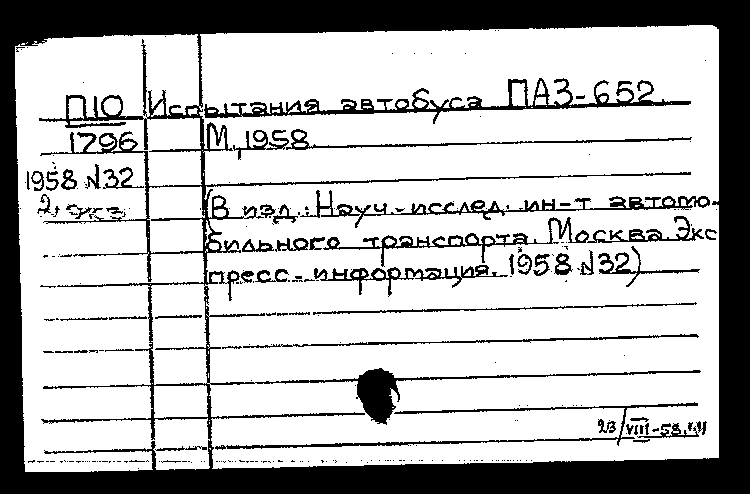 П10 Испытания автобуса ПАЗ-652.
1796 М., 1958.
1958 N32
2 экз (В изд.: Науч.-исслед. ин-т автомо-
бильного транспорта. Москва. Экс
пресс-информация. 1958 N32)
23/VIII-58.